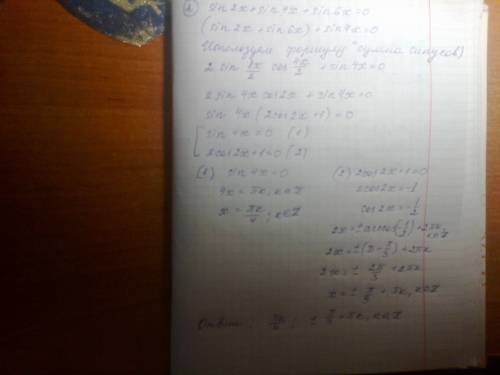 ① sin2x+sin4x+sin6x=0
(sin2x+sin6x)+sin4x=0
Используем формулу "сумма синусов)
2 sin 8x/2 cos 4x/2 + sin4x=0
2sin4x cos2x + sin4x=0
sin 4x (2cos2x+1)=0
[ sin 4x=0 (1)
2cos2x+1=0 (2)
(1) sin4x=0
4x = πk, k∈Z
x = πk/4, k∈Z
(2) 2cos2x+1=0
2cos2x=-1
cos2x=-1/2
2x=±arccos(-1/2)+2πk, k∈Z
2x=±(π-π/3)+2πk
2x=± 2π/3 +2πk
x=± π/3 + πk, k∈Z
Ответ: πk/4; ± π/3 + πk, k∈Z